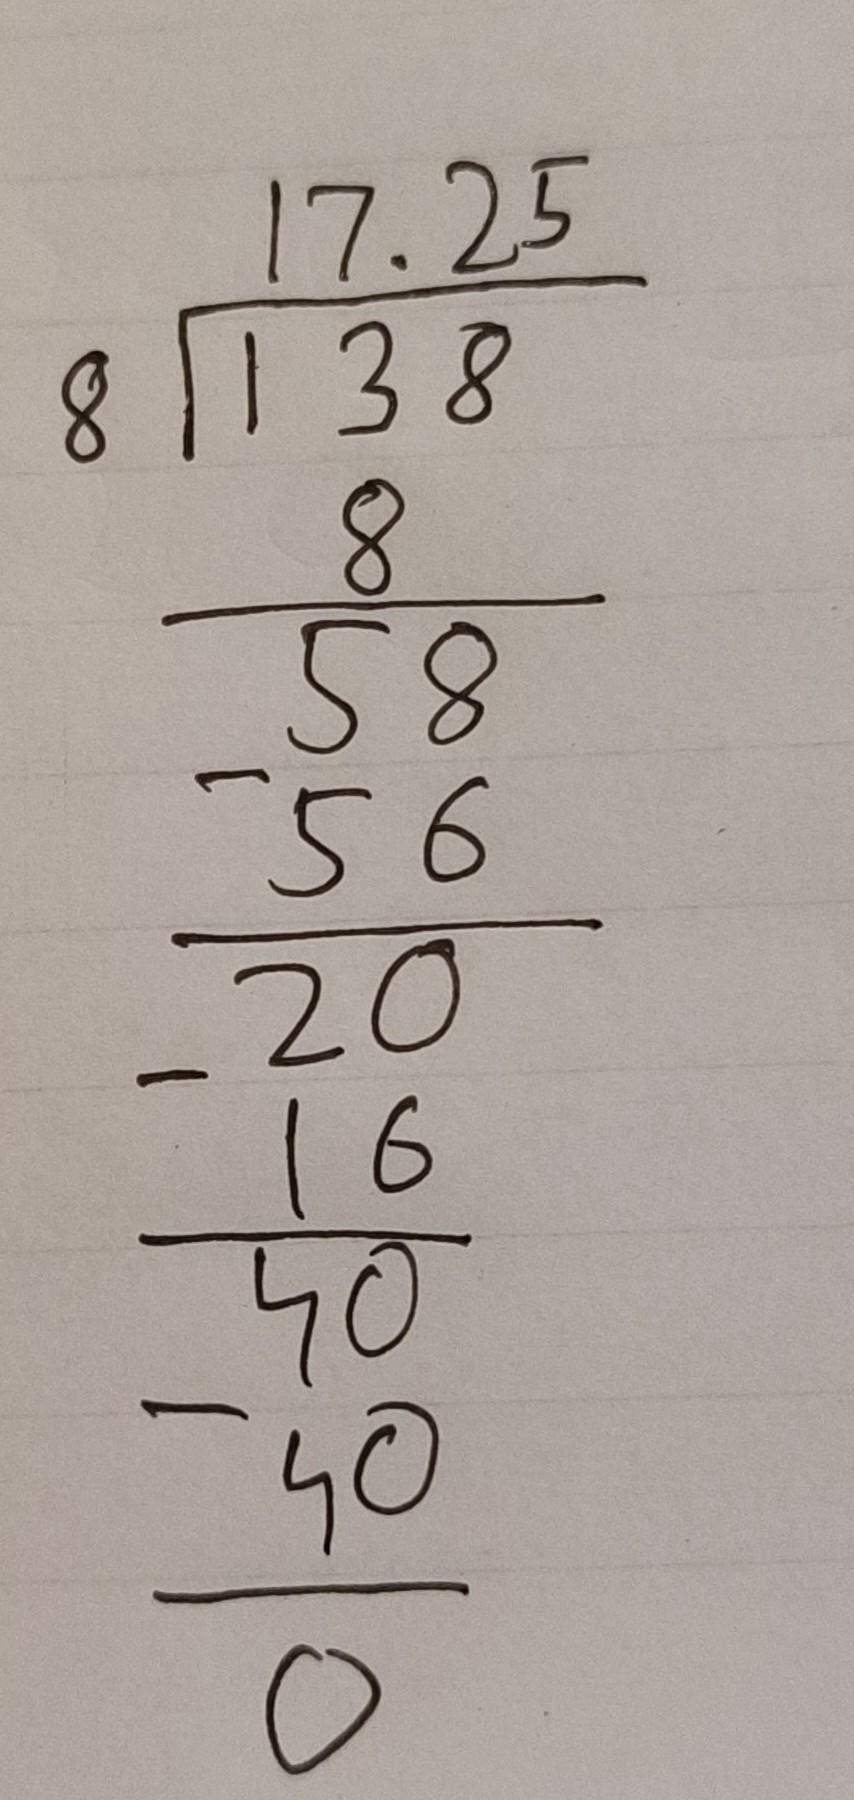 17.25
8 138
8
58
- 56
20
- 16
40
- 40
0